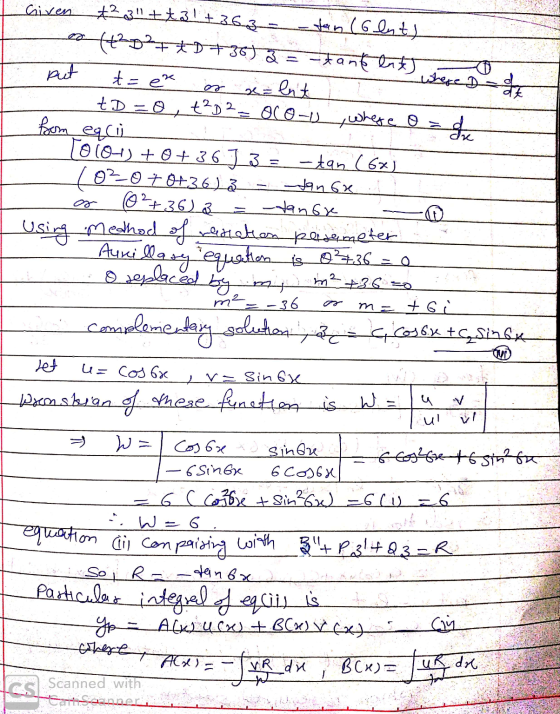 Given t² z'' + t z' + 36 z = - tan (6 ln t)
or (t² D² + t D + 36) z = - tan 6 ln t) — (I)
where D = d/dt
put t = eˣ or x = ln t
tD = θ, t²D² = θ(θ-1), where θ = d/dx
from eq(i)
[θ(θ-1) + θ + 36] z = - tan (6x)
(θ² - θ + θ + 36) z = - tan 6x
or (θ² + 36) z = - tan 6x — (II)
Using Method of variation parameter
Auxillary equation is θ² + 36 = 0
θ replaced by m, m² + 36 = 0
m² = -36 or m = ± 6i
complementary solution, z_c = C₁ cos 6x + C₂ sin 6x
(III)
let u = cos 6x, v = sin 6x
Wronskian of these function is W = | u v |
| u' v' |
⇒ W = | cos 6x sin 6x | = 6 cos² 6x + 6 sin² 6x
| -6 sin 6x 6 cos 6x |
= 6 (cos² 6x + sin² 6x) = 6 (1) = 6
∴ W = 6.
equation (ii) compairing with z'' + P z' + Q z = R
So, R = - tan 6x
Particular integral of eq(ii) is
yp = A(x) u(x) + B(x) v(x) — (iv)
where, A(x) = -∫ vR/W dx, B(x) = ∫ uR/W dx
CS Scanned with
CamScanner